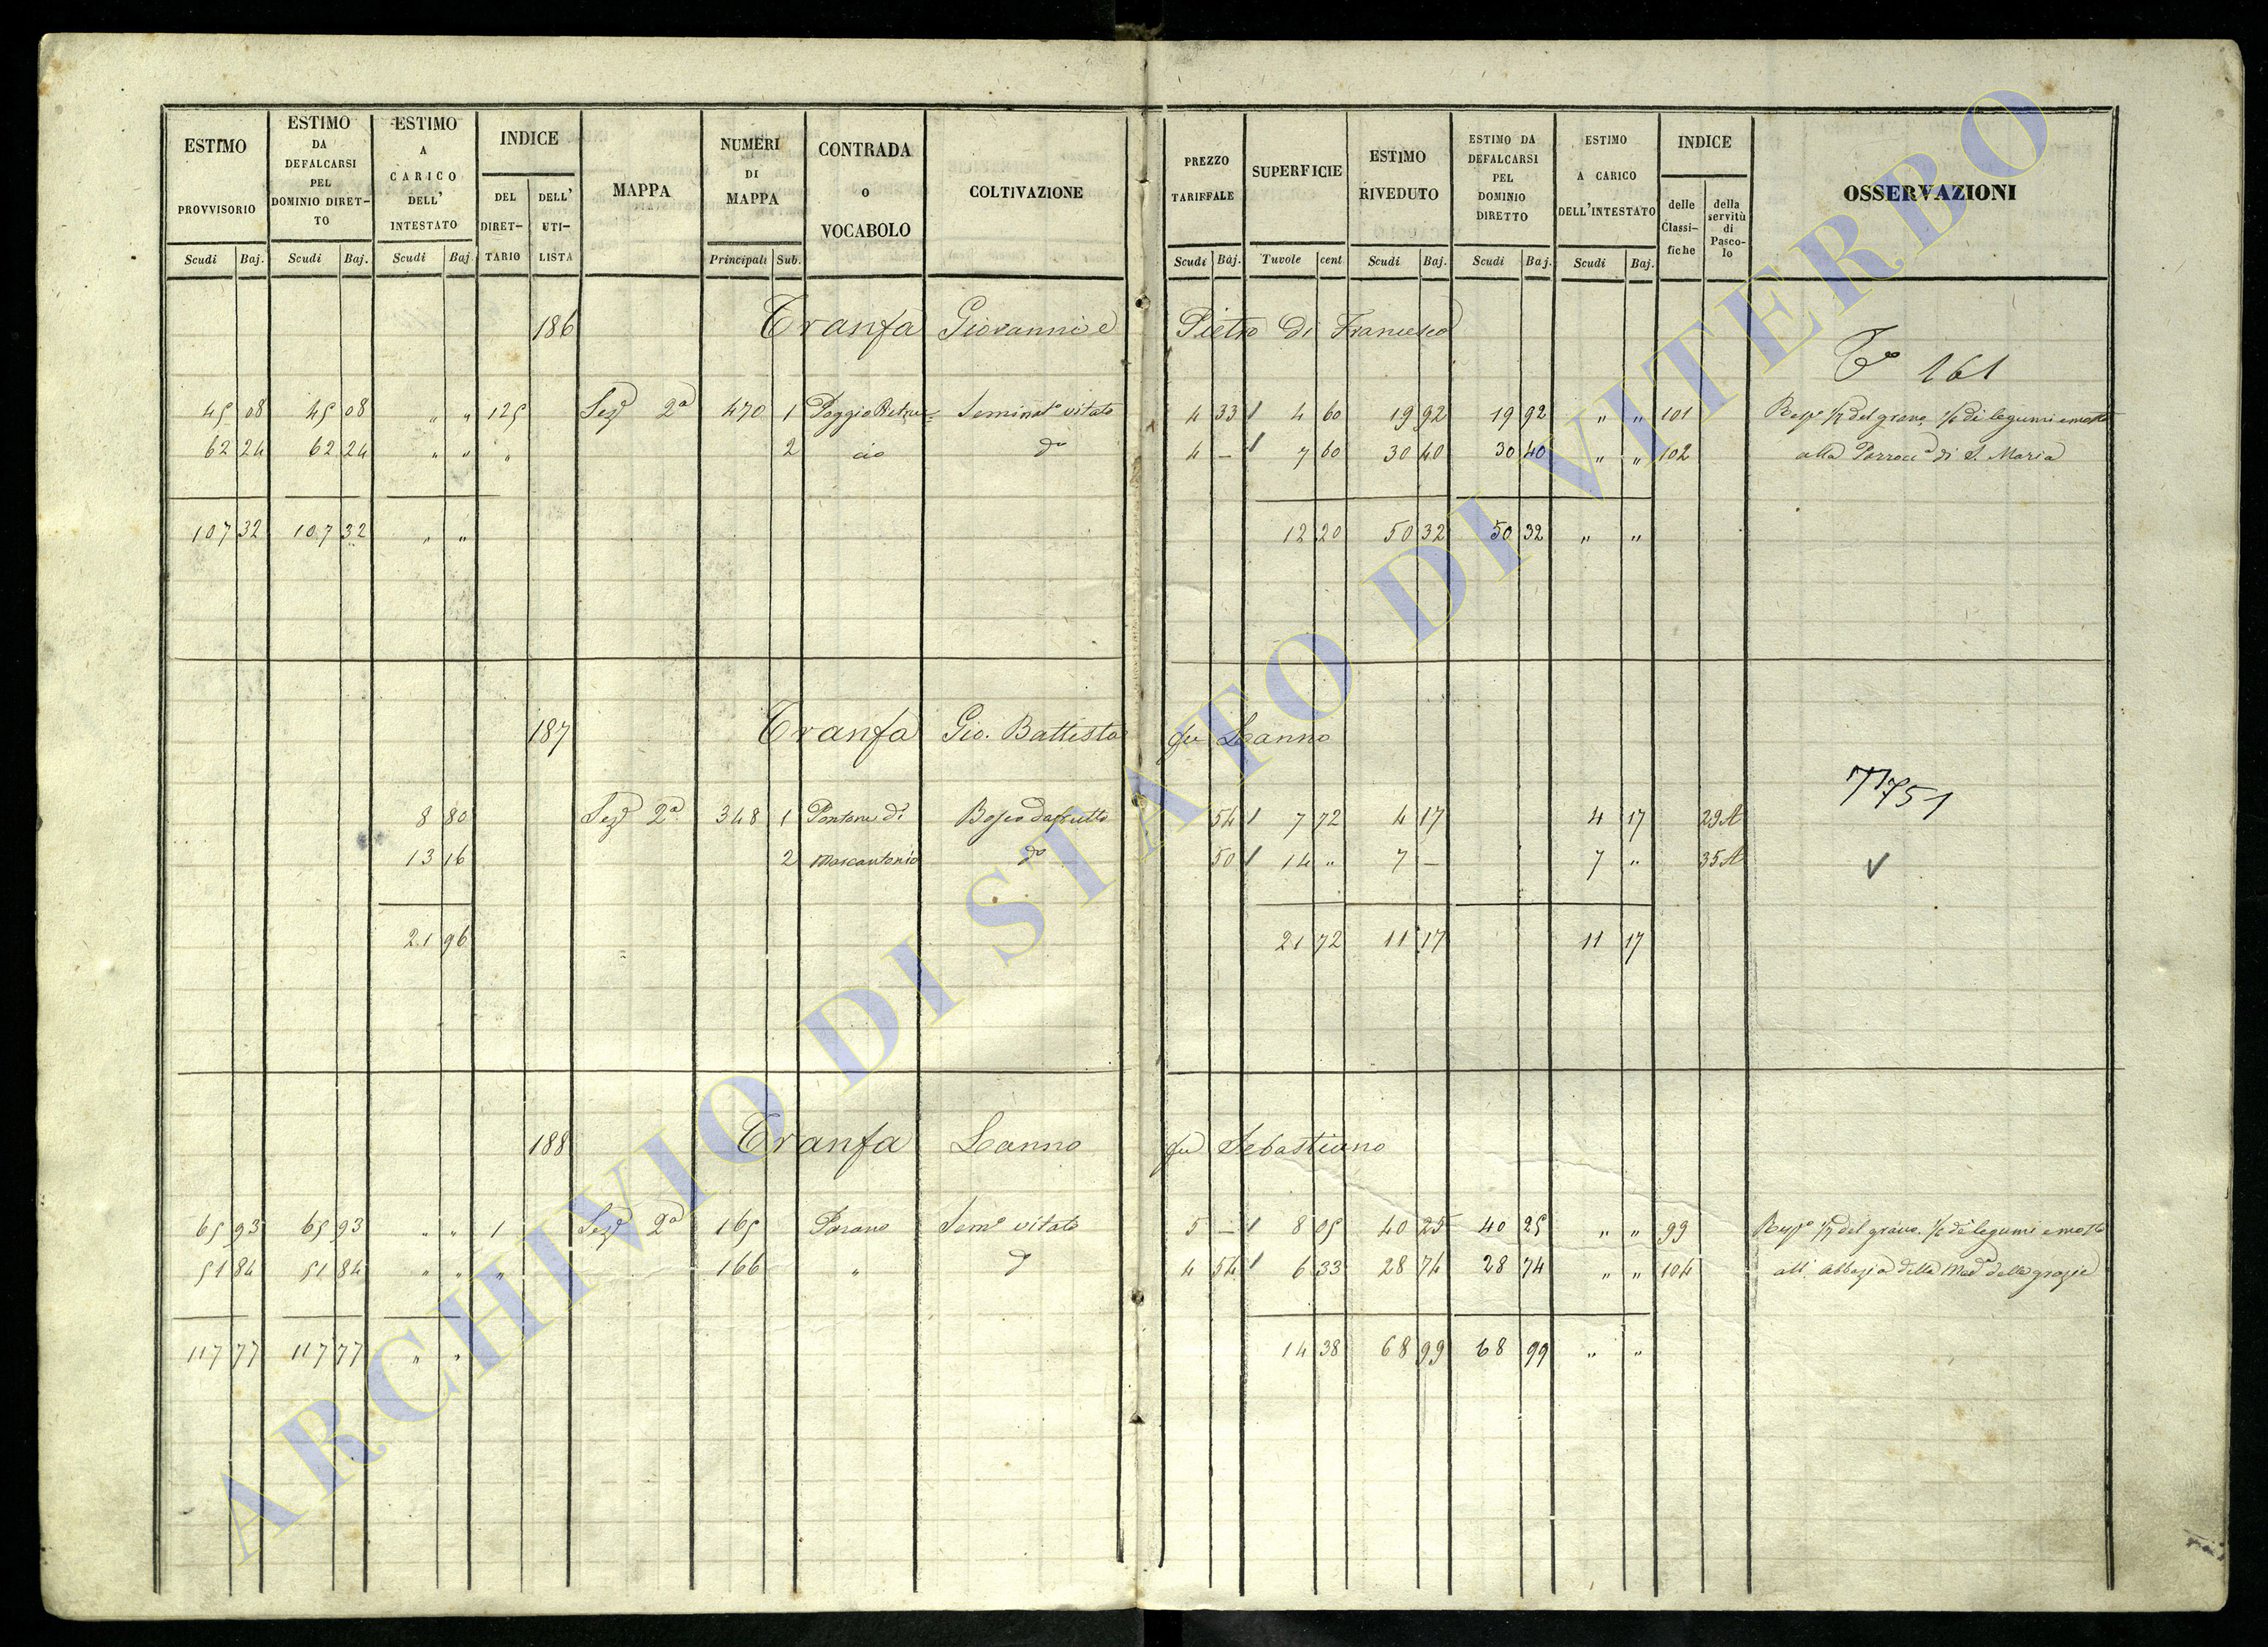 ESTIMO PROVVISORIO Scudi Baj.
ESTIMO DA DEFALCARSI PEL DOMINIO DIRET-TO Scudi Baj.
ESTIMO A CARICO DELL' INTESTATO Scudi Baj
INDICE DEL DIRET-TARIO DELL' UTI-LISTA
MAPPA
NUMERI DI MAPPA Principali Sub.
CONTRADA o VOCABOLO
COLTIVAZIONE
PREZZO TARIFFALE Scudi Baj.
SUPERFICIE Tavole cent
ESTIMO RIVEDUTO Scudi Baj.
ESTIMO DA DEFALCARSI PEL DOMINIO DIRETTO Scudi Baj.
ESTIMO A CARICO DELL'INTESTATO Scudi Baj.
INDICE delle Classi-fiche della servitù di Pasco-lo
OSSERVAZIONI
186 Tranfa Giovanni e Pietro di Francesco
161
45 08 45 08 " " 125 Sez.e 2a 470 1 Poggio Seminat.o vitato 4 33 4 60 19 92 19 92 " " 101 Resp.e 1/7 del grano, di legumi e mosto
62 24 62 24 " " " 2 do 4 – 7 60 30 40 30 40 " " 102 alla Parrocc.a di S. Maria
107 32 107 32 " " 12 20 50 32 50 32 " "
187 Tranfa Gio. Battista fu Zanno
7751
8 80 Sez.e 2a 348 1 Pontone di Bosco da frutto 54 7 72 4 17 4 17 29 A
13 16 2 Marcantonio do 50 14 " 7 – 7 " 35 A
21 96 21 72 11 17 11 17
188 Tranfa Zanno fu Sebastiano
65 93 65 93 " " 1 Sez.e 2a 165 Parano Sem.o vitato 5 – 8 05 40 25 40 25 " " 99 Resp.e 1/7 del grano, di legumi e mosto
51 84 51 84 " " " 166 " do 4 54 6 33 28 74 28 74 " " 104 all' Abbazia della Mad.a delle grazie
117 77 117 77 " " 14 38 68 99 68 99 " "
ARCHIVIO DI STATO DI VITERBO